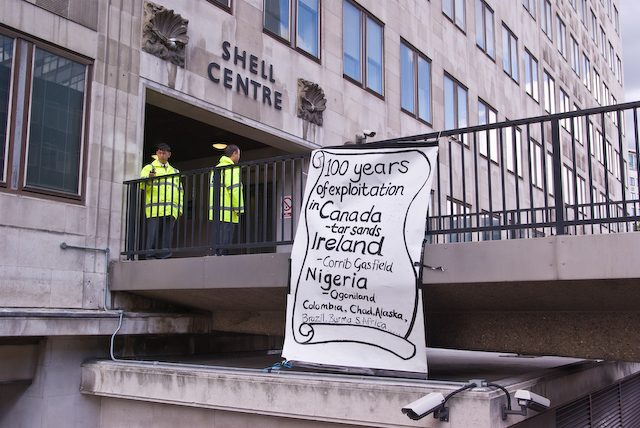 SHELL
CENTRE
100 years
of exploitation
in Canada
-tar sands
Ireland
-Corrib Gasfield
Nigeria
-Ogoniland
Colombia, Chad, Alaska,
Brazil, Burma S Africa